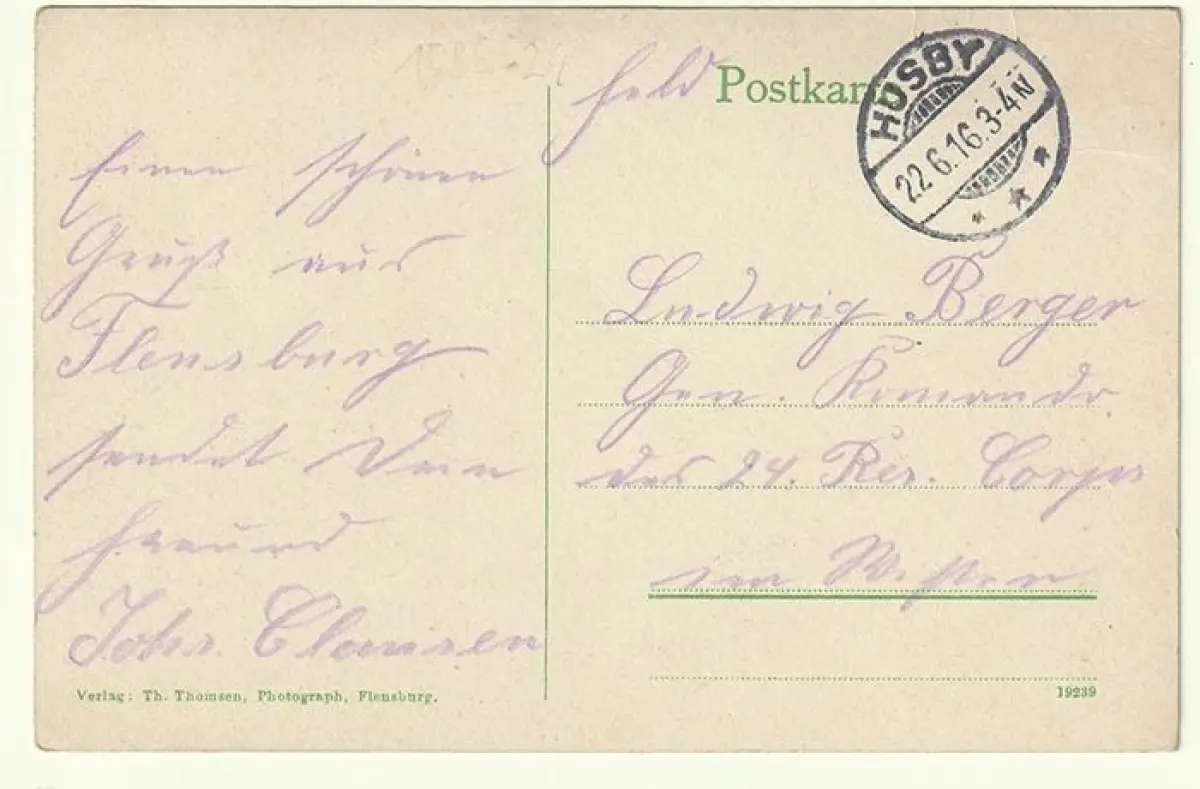 Feld Postkar
HUSBY
22.6.16.3-4N
Einen schönen
Gruß aus
Flensburg
sendet Dein
Freund
Johs. Clausen
Ludwig Berger
Gen. Komando
des 24. Res. Corps
im Westen
Verlag: Th. Thomsen, Photograph, Flensburg.
19239